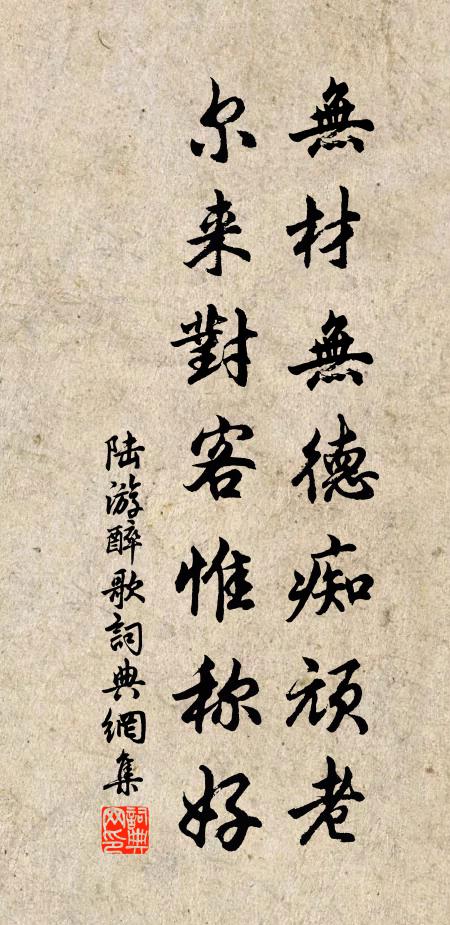 無材無德痴頑老
尔来對客惟称好
陆游醉歌詞典網集
詞典网印